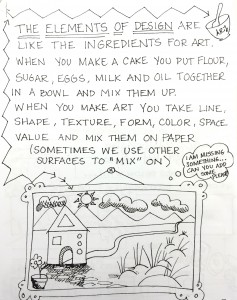 THE ELEMENTS OF DESIGN ARE
LIKE THE INGREDIENTS FOR ART.
WHEN YOU MAKE A CAKE YOU PUT FLOUR,
SUGAR, EGGS, MILK AND OIL TOGETHER
IN A BOWL AND MIX THEM UP.
WHEN YOU MAKE ART YOU TAKE LINE,
SHAPE, TEXTURE, FORM, COLOR, SPACE
VALUE AND MIX THEM ON PAPER
(SOMETIMES WE USE OTHER
SURFACES TO "MIX" ON)
ART
I AM MISSING
SOMETHING...
CAN YOU ADD
SOME
PLEASE